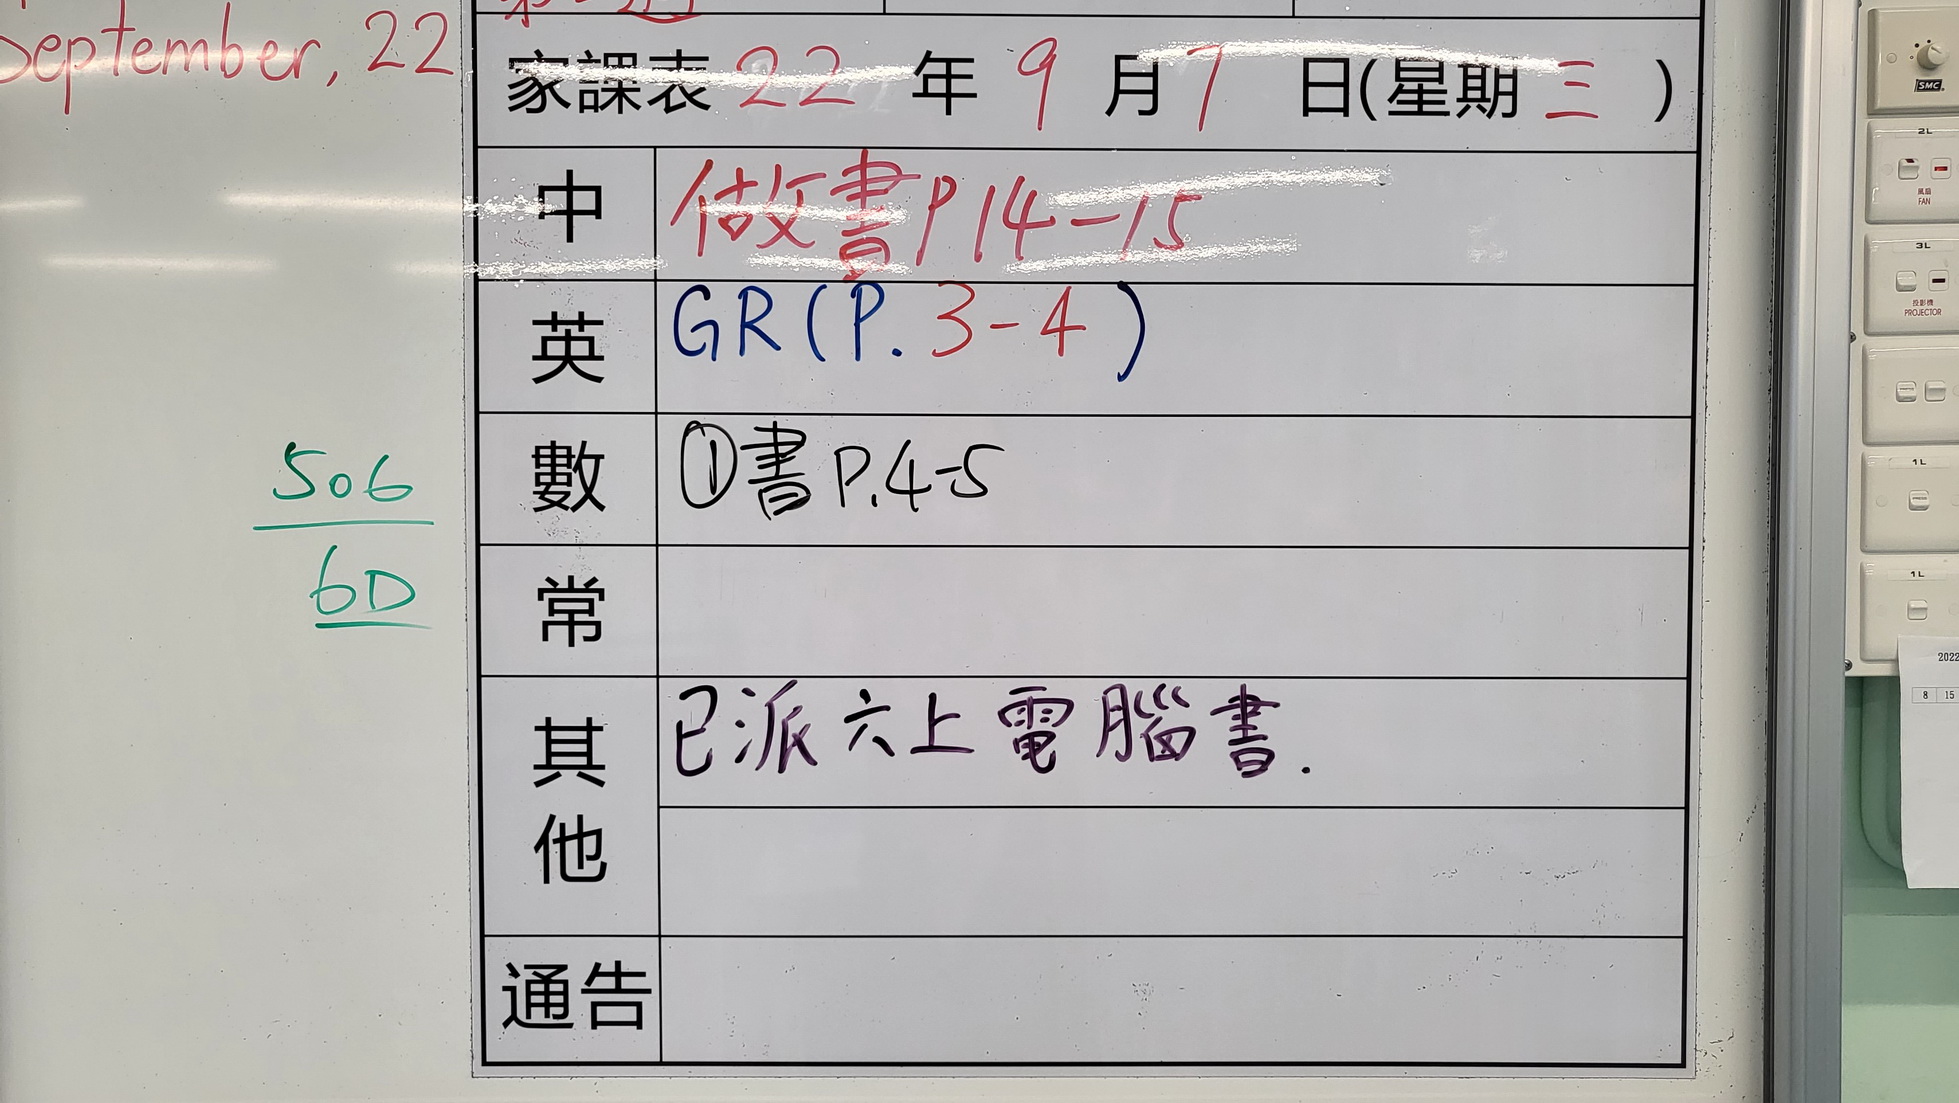 September, 22
家課表 22 年 9 月 7 日(星期 三 )
中 做書 P14-15
英 GR(P. 3-4 )
數 ①書 P.4-5
506
6D
常
其他 已派六上電腦書.
通告
SMC
2L
風扇
FAN
3L
投影機
PROJECTOR
1L
1L
2022
8 15